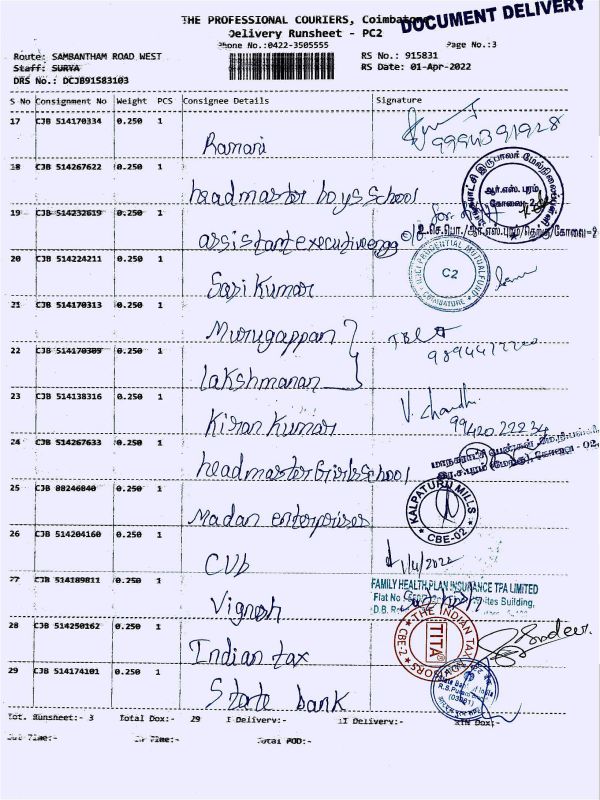 THE PROFESSIONAL COURIERS, Coimbatore
DOCUMENT DELIVERY
Delivery Runsheet - PC2
Phone No.:0422-3505555
Page No.:3
Route: SAMBANTHAM ROAD WEST
RS No.: 915831
Staff: SURYA
RS Date: 01-Apr-2022
DRS No.: DCJB91583103
S No Consignment No Weight PCS Consignee Details Signature
17 CJB 514170334 0.250 1
Ramani 9994391928
18 CJB 514267622 0.250 1
headmaster boys school
ஆர்.எஸ். புரம், கோவை-2
19 CJB 514232619 0.250 1
assistant executive engg
20 CJB 514224211 0.250 1
Sasi Kumar
ICICI PRUDENTIAL MUTUAL FUND C2 COIMBATORE
21 CJB 514170313 0.250 1
Murugappan
22 CJB 514170309 0.250 1
Lakshmanan
23 CJB 514138316 0.250 1
Kiran Kumar V. Chandhi
9942022234
24 CJB 514267633 0.250 1
headmaster Girls School
25 CJB 88246840 0.250 1
Madan enterprises
KALPATURU MILLS CBE-02
26 CJB 514204160 0.250 1
CUb 1/4/2022
27 CJB 514189811 0.250 1
Vignesh
FAMILY HEALTH PLAN INSURANCE TPA LIMITED
Flat No Building,
D.B. R
28 CJB 514250162 0.250 1
Indian tax
THE INDIAN TAX ADVISORS TITA CBE-2
29 CJB 514174101 0.250 1
State bank
Tot. Runsheet:- 3 Total Dox:- 29 I Delivery:- II Delivery:- RTN Dox:-
Out Time:- In Time:- Total POD:-